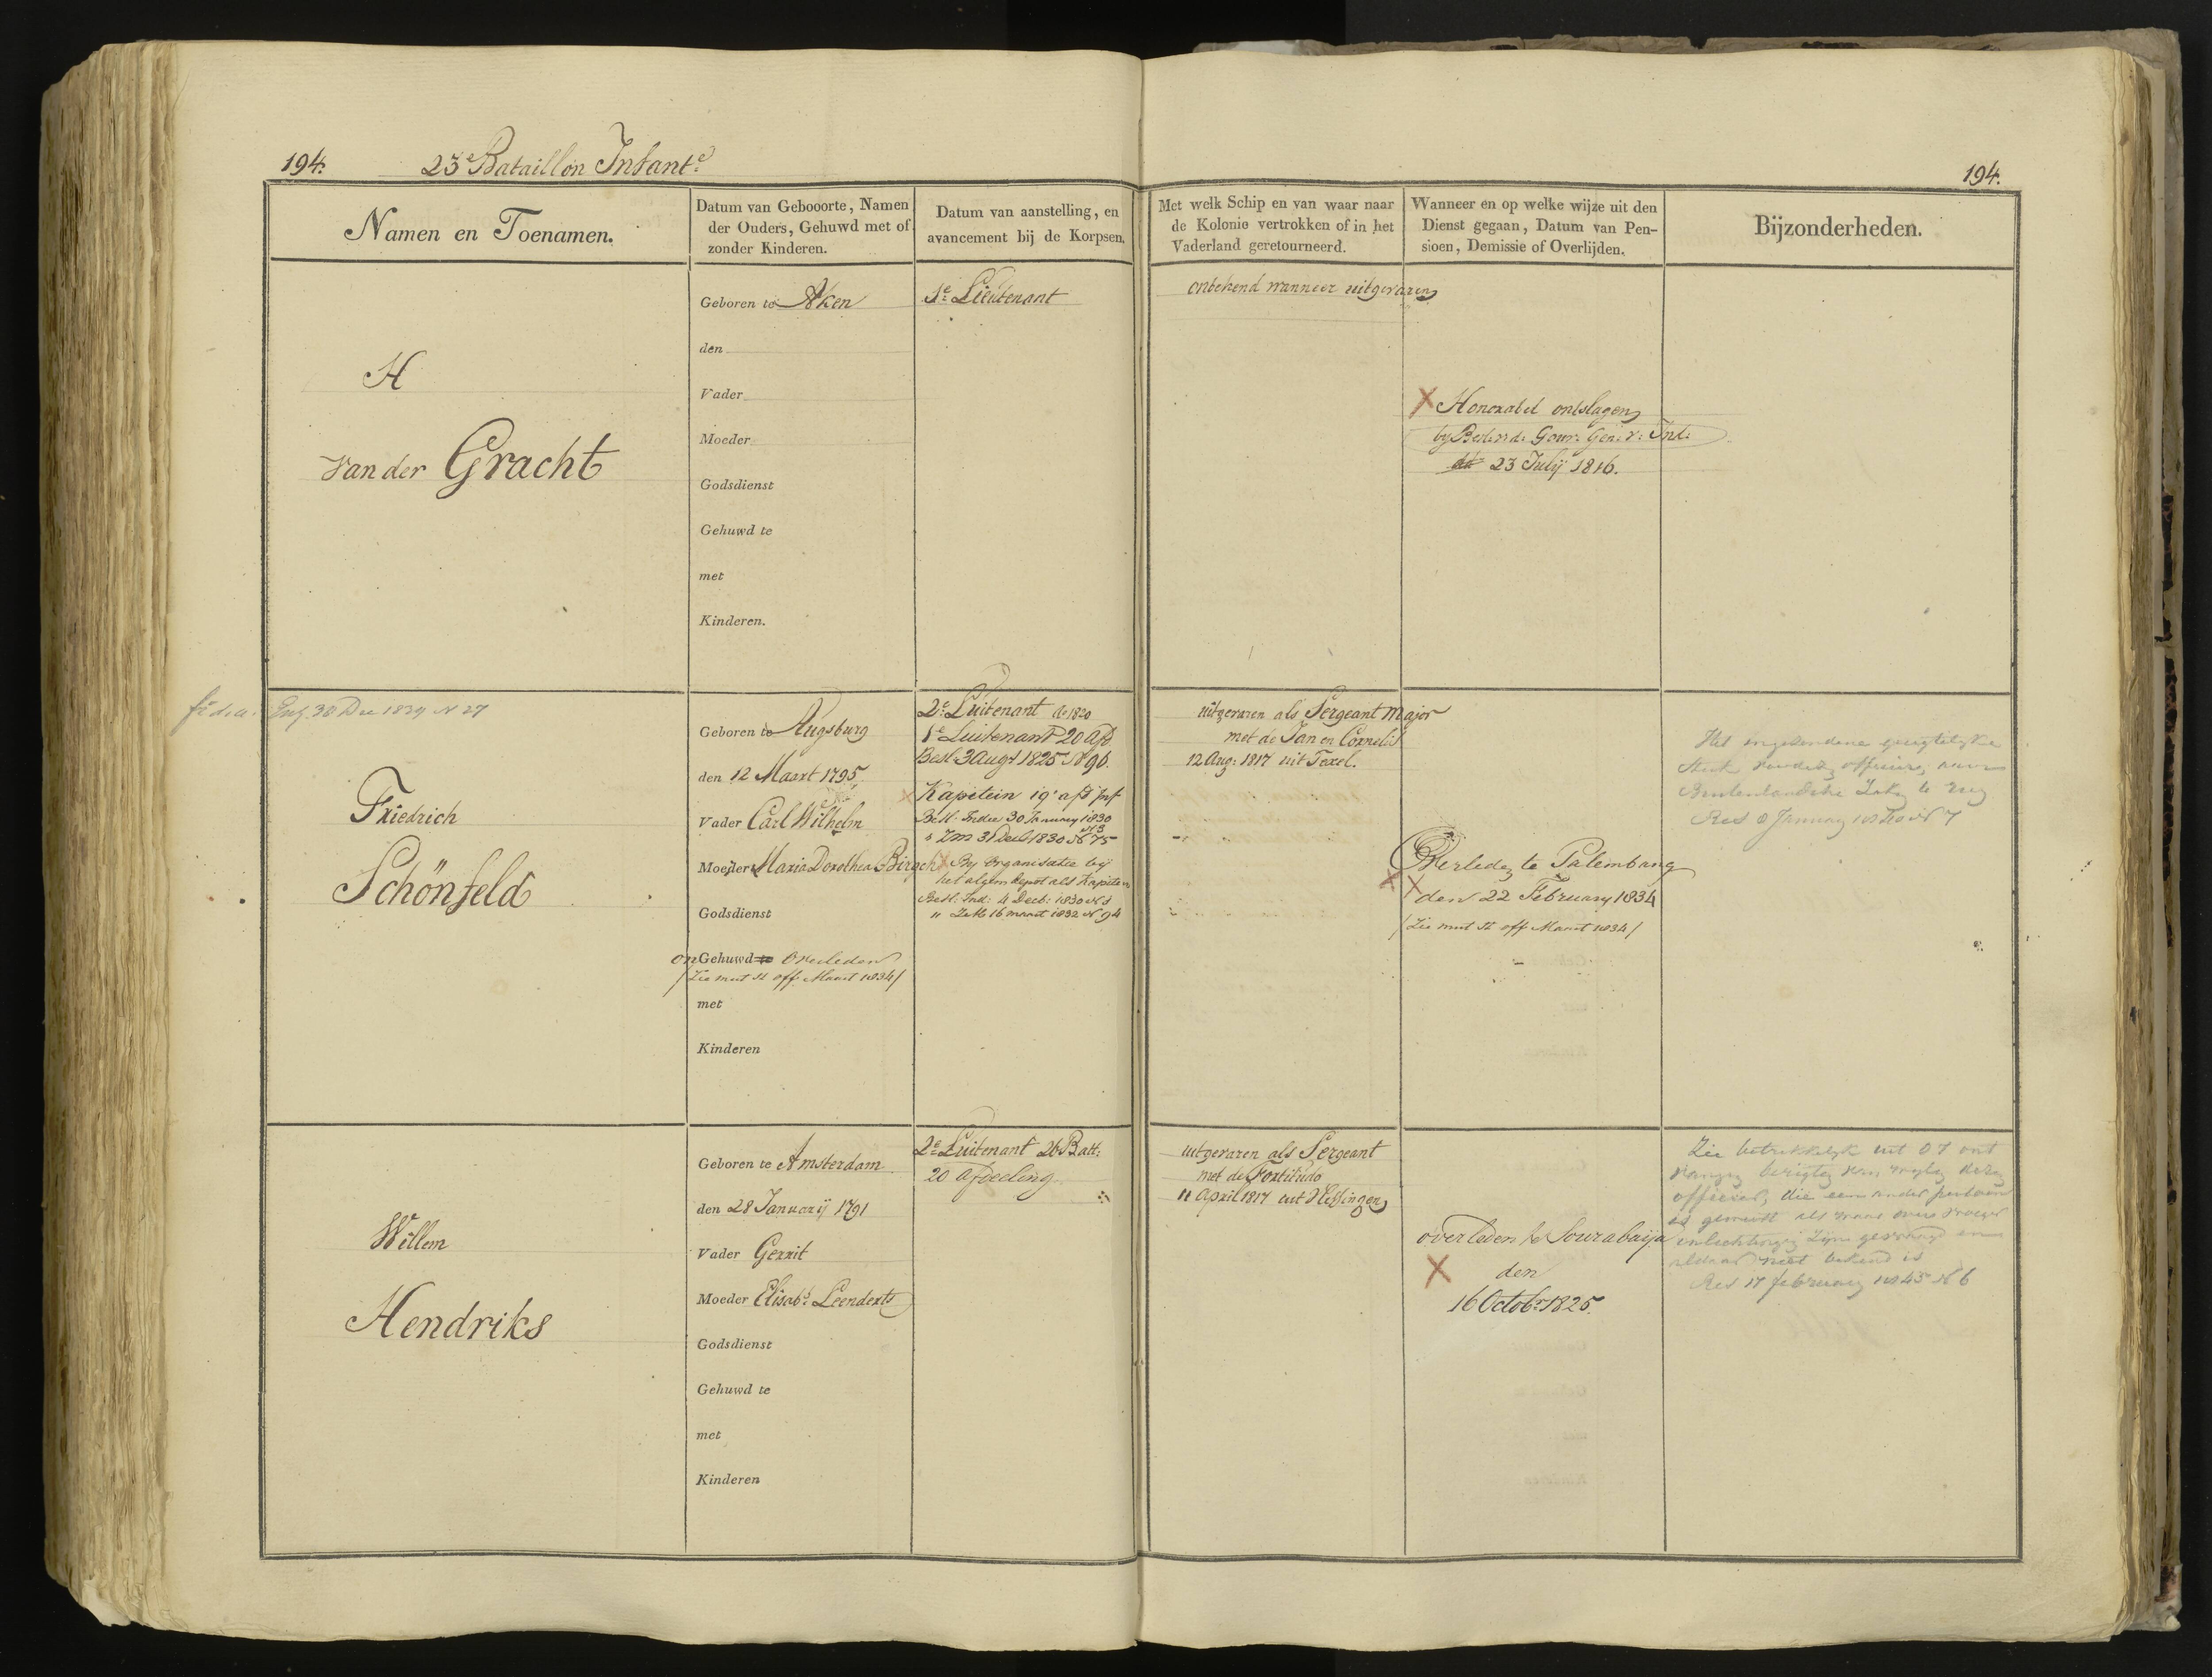 194. 23e Bataillon Infante
194.
Namen en Toenamen.
Datum van Gebooorte, Namen
der Ouders, Gehuwd met of
zonder Kinderen.
Datum van aanstelling, en
avancement bij de Korpsen,
Met welk Schip en van waar naar
de Kolonie vertrokken of in het
Vaderland geretourneerd.
Wanneer en op welke wijze uit den
Dienst gegaan, Datum van Pen-
sioen, Demissie of Overlijden.
Bijzonderheden.
H
van der Gracht
Geboren te Aken
den
Vader
Moeder
Godsdienst
Gehuwd te
met
Kinderen.
1e Lieutenant
onbekend wanneer uitgevaren
Honorabel ontslagen
by Besl: v: d: Gouv: Gen: v: Ind:
dd 23 Julij 1816.
30 Dec 1829 N 27
Friedrich
Schönfeld
Geboren te Augsburg
den 12 Maart 1795
Vader Carl Wilhelm
Moeder Maria Dorothea Birsch
Godsdienst
onGehuwd te Overleden
/Zie mut st off Maart 1834/
met
Kinderen
2e Luitenant de 1820
1e Luitenant 20 Afd.
Besl 3 Augt 1825 N 96.
Kapitein 19e afd Inf
Besl: Indie 30 January 1830
N 3
" Zm 31 Decb 1830 N 75
By organisatie bij
het algem depot als Kapitein
Besl: Ind: 4 Decb: 1830 N 1
" 16 maart 1832 N 94
uitgevaren als Sergeant Major
met de Jan en Cornelis
12 Aug: 1817 uit Texel.
Overleden te Palembang
den 22 February 1834
/Zie mut st off Maart 1834/
Het ingezondene
officier, naar
Buitenlandsche Zaken
Res 8 January N 7
Willem
Hendriks
Geboren te Amsterdam
den 28 Januarij 1791
Vader Gerrit
Moeder Elisabt Leenderts
Godsdienst
Gehuwd te
met
Kinderen
2e Luitenant 26 Batt:
20 Afdeeling
uitgevaren als Sergeant
met de Fortitudo
11 April 1817 uit Vlissingen
overleden te Sourabaija
den
16 Octobr 1825.
Zie betrekkelyk uit O I ont
vangen berigten van wylen dezen
officier, die een ander persoon
is gemeent als waar over vroeger
inlichtingen zyn gevraagd en
aldaar niet bekend is
Res 17 february 1845 N 6